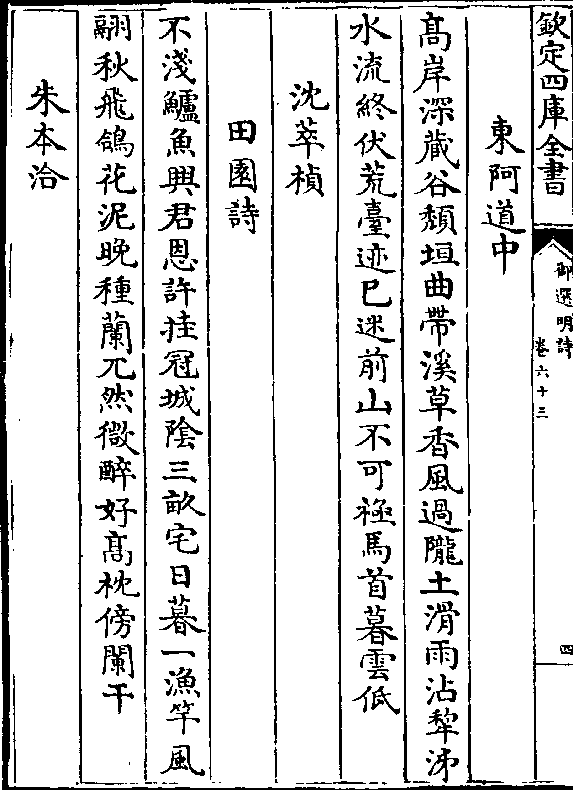 欽定四庫全書
御選明詩
卷六十三
四
東阿道中
高岸深藏谷頽垣曲帶溪草香風過隴土滑雨沾犂沸
水流終伏荒臺迹已迷前山不可極馬首暮雲低
沈萃楨
田園詩
不淺鱸魚興君恩許挂冠城陰三畝宅日暮一漁竿風
翻秋飛鴿花泥晚種蘭兀然微醉好髙枕傍闌干
朱本洽